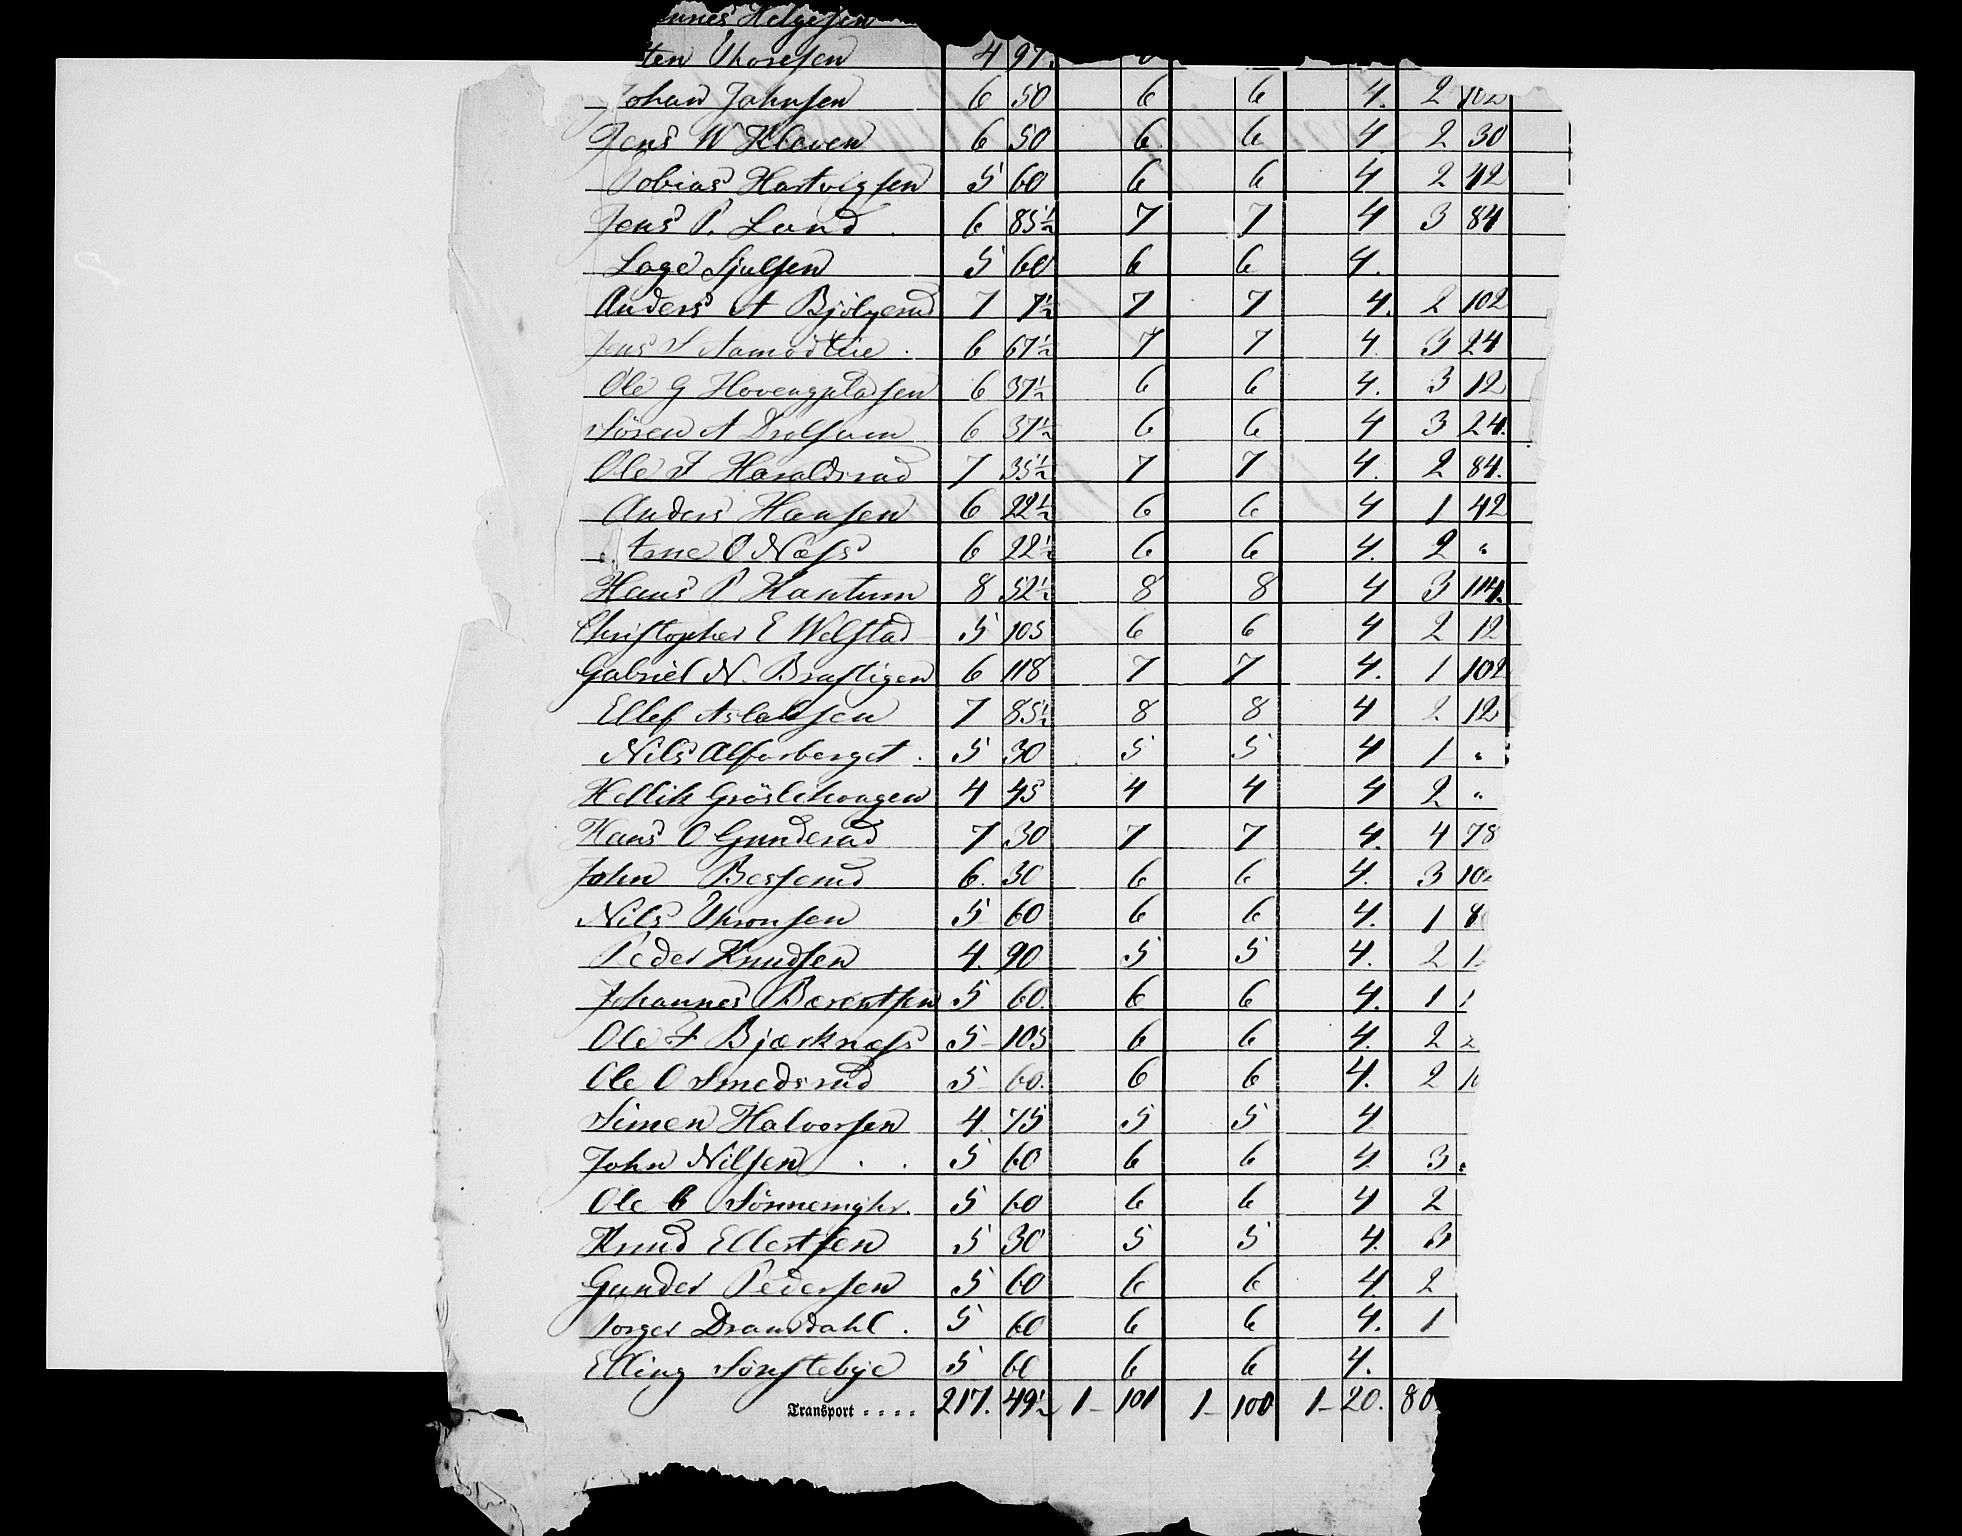 Helgesen
Thoresen 4 97
Johan Johnsen 6 50 6 6 4. 2 102
Jens W Klaven 6 50 6 6 4. 2 30
Tobias Hartvigsen 5 60 6 6 4 2 42
Jens P. Lund 6 85½ 7 7 4 3 84
Lage Sjulsen 5 60 6 6 4.
Anders A Bjölgerud 7 7½ 7 7 4. 2 102
Jens S Aamodteie 6 67½ 7 7 4. 3 24
Ole G Hovengpladsen 6 37½ 6 6 4. 3 12
Sören A Drolsum 6 37½ 6 6 4 3 24.
Ole F Haraldsrud 7 35½ 7 7 4. 2 84.
Anders Hansen 6 22½ 6 6 4 1 42
Arne O Næss 6 22½ 6 6 4. 2 "
Hans P Kantum 8 52½ 8 8 4 3 114.
Christopher E Welstad 5 105 6 6 4 2 12
Gabriel N. Brastigen 6 118 7 7 4. 1 102
Ellef Aslaksen 7 85½ 8 8 4 2. 12
Nils Alfarberget 5 30 5 5 4 1 "
Hellik Gröslihougen 4 45 4 4 4 2 "
Hans O Gunderud 7 30 7 7 4. 4 78
John Besserud 6. 30 6 6 4. 3 10
Nils Thronsen 5 60 6 6 4. 1 8
Peder Knudsen 4. 90 5 5 4. 2 1
Johannes Berentsen 5 60. 6 6 4. 1 1
Ole F Bjerknæss 5 105 6 6 4. 2 2
Ole O Smedsrud 5 60. 6 6 4. 2 10
Simen Halvorsen 4. 75 5 5 4
John Nilsen . . 5 60 6 6 4 3
Ole C Sönnemyhr. 5 60 6 6 4 2
Knud Ellertsen 5 30 5 5 4. 3
Gunder Pedersen 5 60 6 6 4. 2
Torger Dramdahl . 5 60 6 6 4. 1
Elling Sörstebye 5 60 6 6 4.
Transport . . . . 217. 49½ 1– 101 1– 100 1– 20. 80